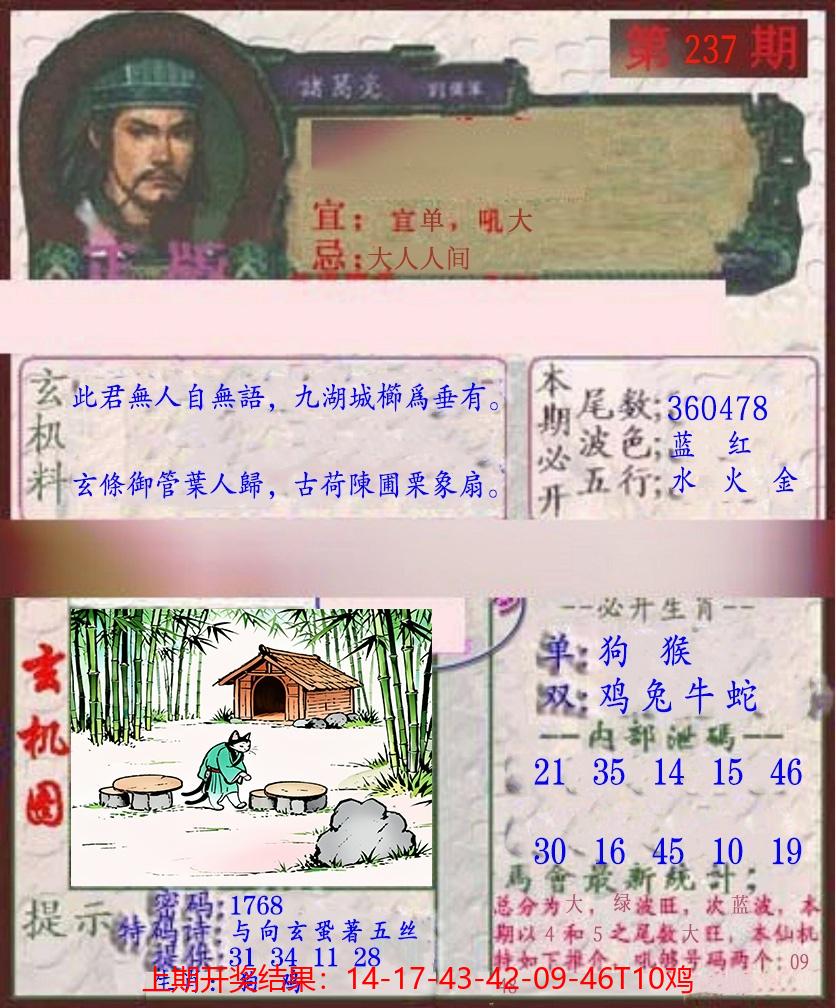 第 237 期
諸葛亮
宜；宜单，吼大
忌；大人人间
正版
玄机料
此君無人自無語，九湖城櫛爲垂有。
玄條御管葉人歸，古荷陳圃栗象扇。
本期必开
尾数；360478
波色；蓝 红
五行；水 火 金
玄机图
--必开生肖--
单：狗 猴
双：鸡兔牛蛇
——内部泄碼——
21 35 14 15 46
30 16 45 10 19
馬會最新統計；
总分为大，绿波旺，次蓝波，本
期以4和5之尾数大旺，本仙机
特如下推介，吼够号码两个：09
18
提示
密码：1768
特码诗：与向玄蛩著五丝
提供：31 34 11 28
上期开奖结果：14-17-43-42-09-46T10鸡